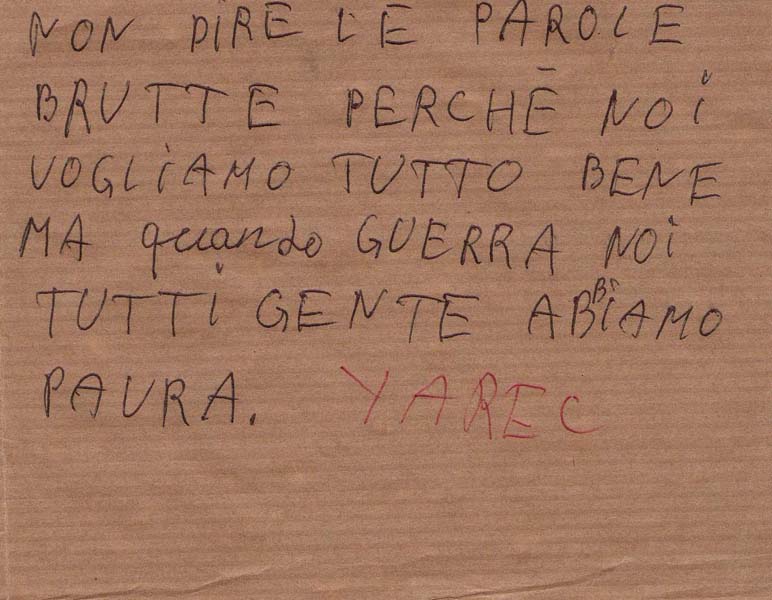 NON DIRE LE PAROLE
BRUTTE PERCHĒ NOI
VOGLIAMO TUTTO BENE
MA quando GUERRA NOI
TUTTI GENTE ABBIAMO
PAURA. YAREC